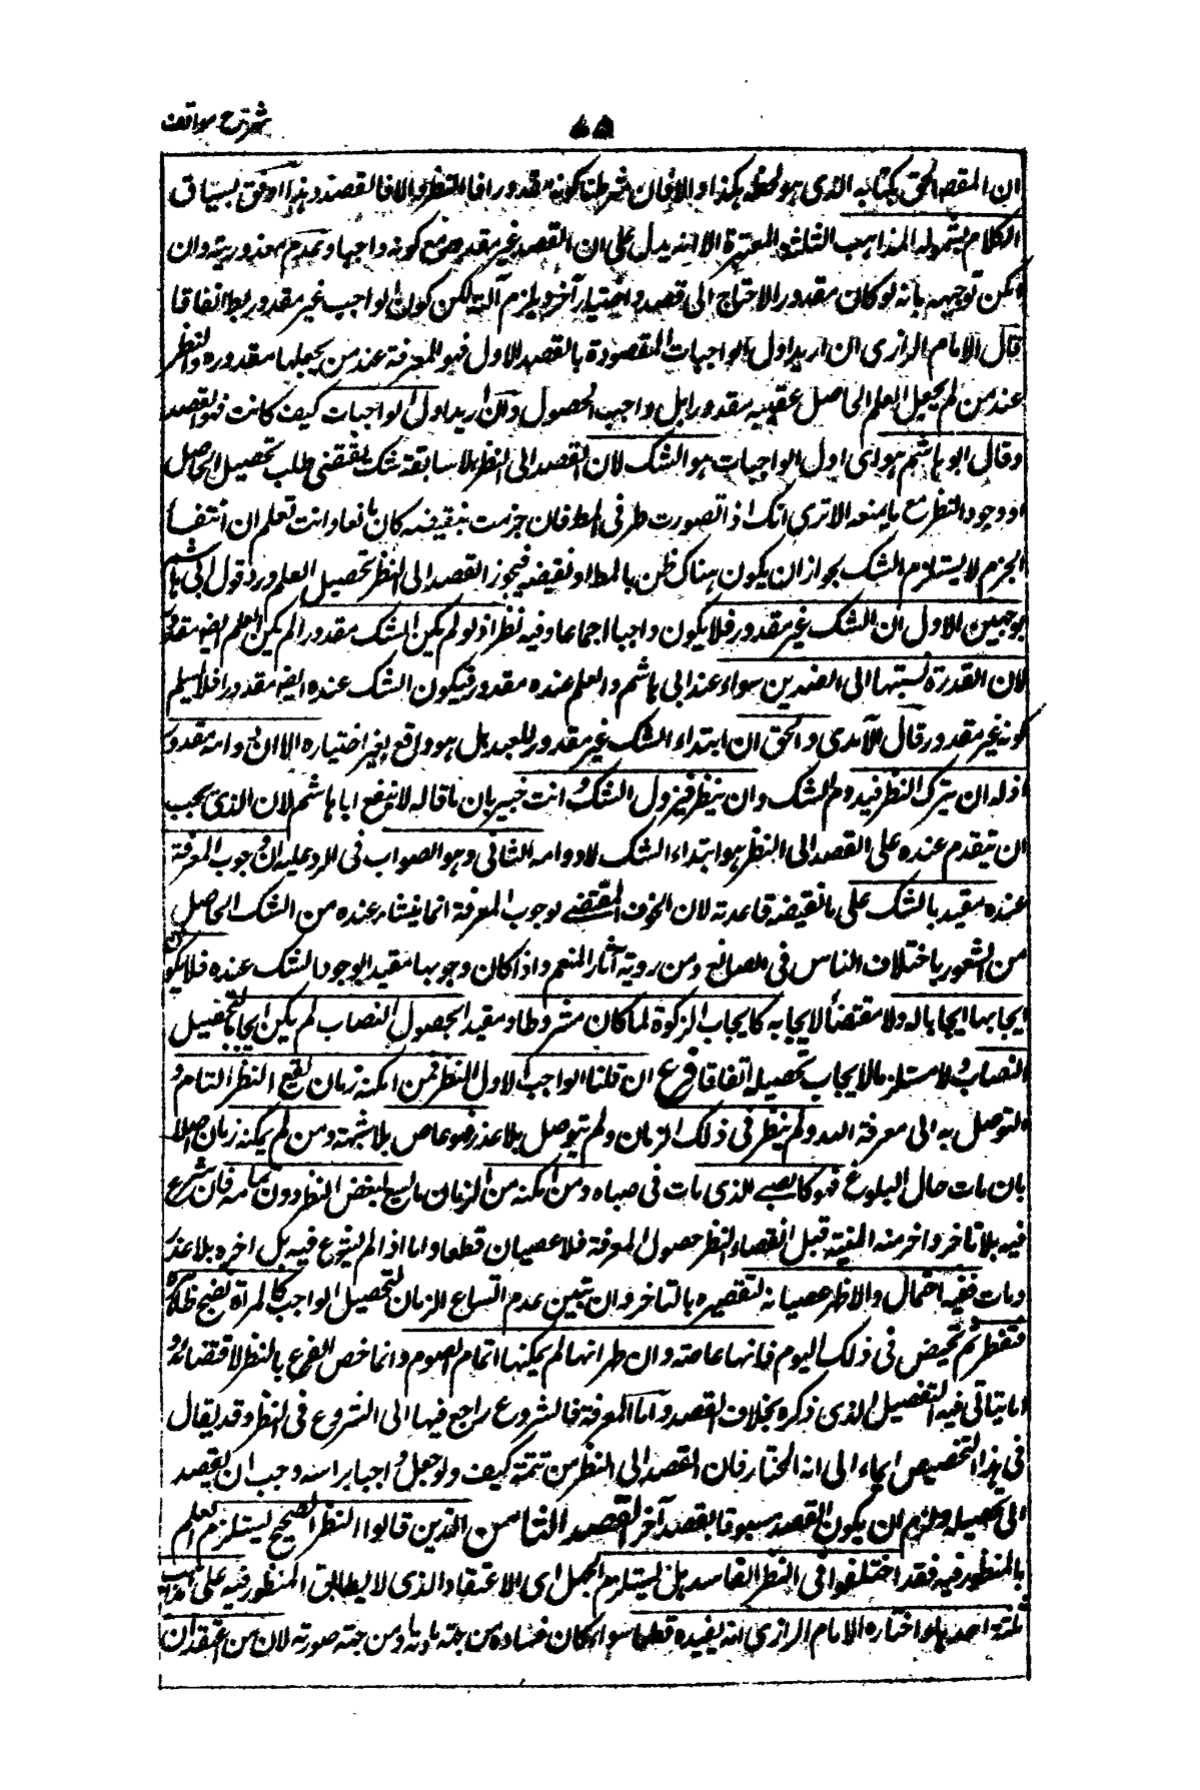 شرح مواقف
٧٥
ان المقصد الحق بكتابه الذى هو لحظه هكذا والا فان شرطنا كونه مقدورا فالنظر والا فالقصد وهذا اوفق بسياق
الكلام شموله المذاهب الثلثة المعتبرة الا انه يدل على ان القصد غير مقدور مع كونه واجبا وعدم مقدوريته وان
امكن توجيهه بانه لو كان مقدورا لاحتاج الى قصد واختيار آخر ويلزم آلت لكن كون الواجب غير مقدور بط اتفاقا
قال الامام الرازى ان اريد اول الواجبات المقصودة بالقصد الاول فهو المعرفة عند من يجعلها مقدوره والنظر
عند من لم يجعل العلم الحاصل عقيبه مقدورا بل واجب الحصول وان اريد اول الواجبات كيف كانت فهو القصد
وقال ابو هاشم هو اى اول الواجبات هو الشك لان القصد الى النظر بلا سابقة شك يقتضى طلب تحصيل الحاصل
او وجود النظر مع ما يمنعه الا ترى انك اذا تصورت طرفى المط فان جزمت بنقيضه كان مانعا وانت تعلم ان انتفاء
الجزم لا يستلزم الشك بجواز ان يكون هناك ظن بالمط او نقيضه فيجوز القصد الى النظر تحصيل العلم ورد قول ابى هاشم
بوجهين الاول ان الشك غير مقدور فلا يكون واجبا اجماعا وفيه نظر اذ لو لم يكن الشك مقدورا لم يكن العلم ايضا مقدورا
لان القدرة نسبتها الى الضدين سواء عند ابى هاشم والعلم عنده مقدور فيكون الشك عنده ايضا مقدورا فلا يسلم
كونه غير مقدور قال الآمدى والحق ان ابتداء الشك غير مقدور للعبد بل هو واقع بغير اختياره الا ان دوامه مقدور
اذ له ان يترك النظر فيدوم الشك وان ينظر فيزول الشك وانت خبير بان ما قاله لا ينفع ابا هاشم لان الذى يجب
ان يتقدم عنده على القصد الى النظر هو ابتداء الشك لا دوامه الثانى وهو الصواب فى الرد عليه ان وجوب المعرفة
عنده مقيد بالشك على ما تقتضيه قاعدته لان الخوف المقتضى لوجوب المعرفة انما ينشاء عنده من الشك الحاصل
من الشعور باختلاف الناس فى الصانع ومن روية آثار النعم واذا كان وجوبها مقيدا بوجود الشك عنده فلا يكون
ايجابها ايجابا له ولا مقتضيا لايجابه كايجاب الزكوة لما كان مشروطا ومقيدا بحصول النصاب لم يكن ايجابا لتحصيل
النصاب ولا مستلزما لايجاب تحصيله اتفاقا فرع ان قلنا الواجب الاول النظر فمن امكنه زمان يقع النظر التام و
التوصل به الى معرفة الله ولم ينظر فى ذلك الزمان ولم يتوصل بلا عذر فهو عاص بلا شبهة ومن لم يمكنه زمان اصلا
بان مات حال البلوغ فهو كالصبى الذى مات فى صباه ومن امكنه من الزمان ما يسع لبعض النظر دون تمامه فان شرع
فيه بلا تاخر واخترمته المنية قبل انقضاء النظر حصول المعرفة فلا عصيان قطعا واما اذا لم يشرع فيه بل اخره بلا عذر
ومات ففيه احتمال والاظهر عصيانه لتقصيره بالتاخر وان تبين عدم اتساع الزمان لتحصيل الواجب كالمرأة تصبح طاهرة
فتفطر ثم تحيض فى ذلك اليوم فانها عاصية وان ظهر انها لم يمكنها اتمام الصوم وانما خص الفرع بالنظر لاقتضائه
ما يتاتى فيه التفصيل الذى ذكره بخلاف القصد واما المعرفة فالشروع راجع فيها الى الشروع فى النظر وقد يقال
فى هذا التخصيص ايماء الى انه المختار فان القصد الى النظر من تتمته كيف ولو جعل واجبا براسه وجب ان يقصد
الى تحصيله ولزم ان يكون القصد مسبوقا بقصد آخر القصد الثامن الذين قالوا النظر الصحيح يستلزم العلم
بالمنظور فيه فقد اختلفوا فى النظر الفاسد هل يستلزم الجهل اى الاعتقاد الذى لا يطابق المنظور فيه على مذاهب
ثلثة احدها واختاره الامام الرازى انه يفيده قطعا سواء كان فساده من جهة مادته او من جهة صورته لان من اعتقد ان